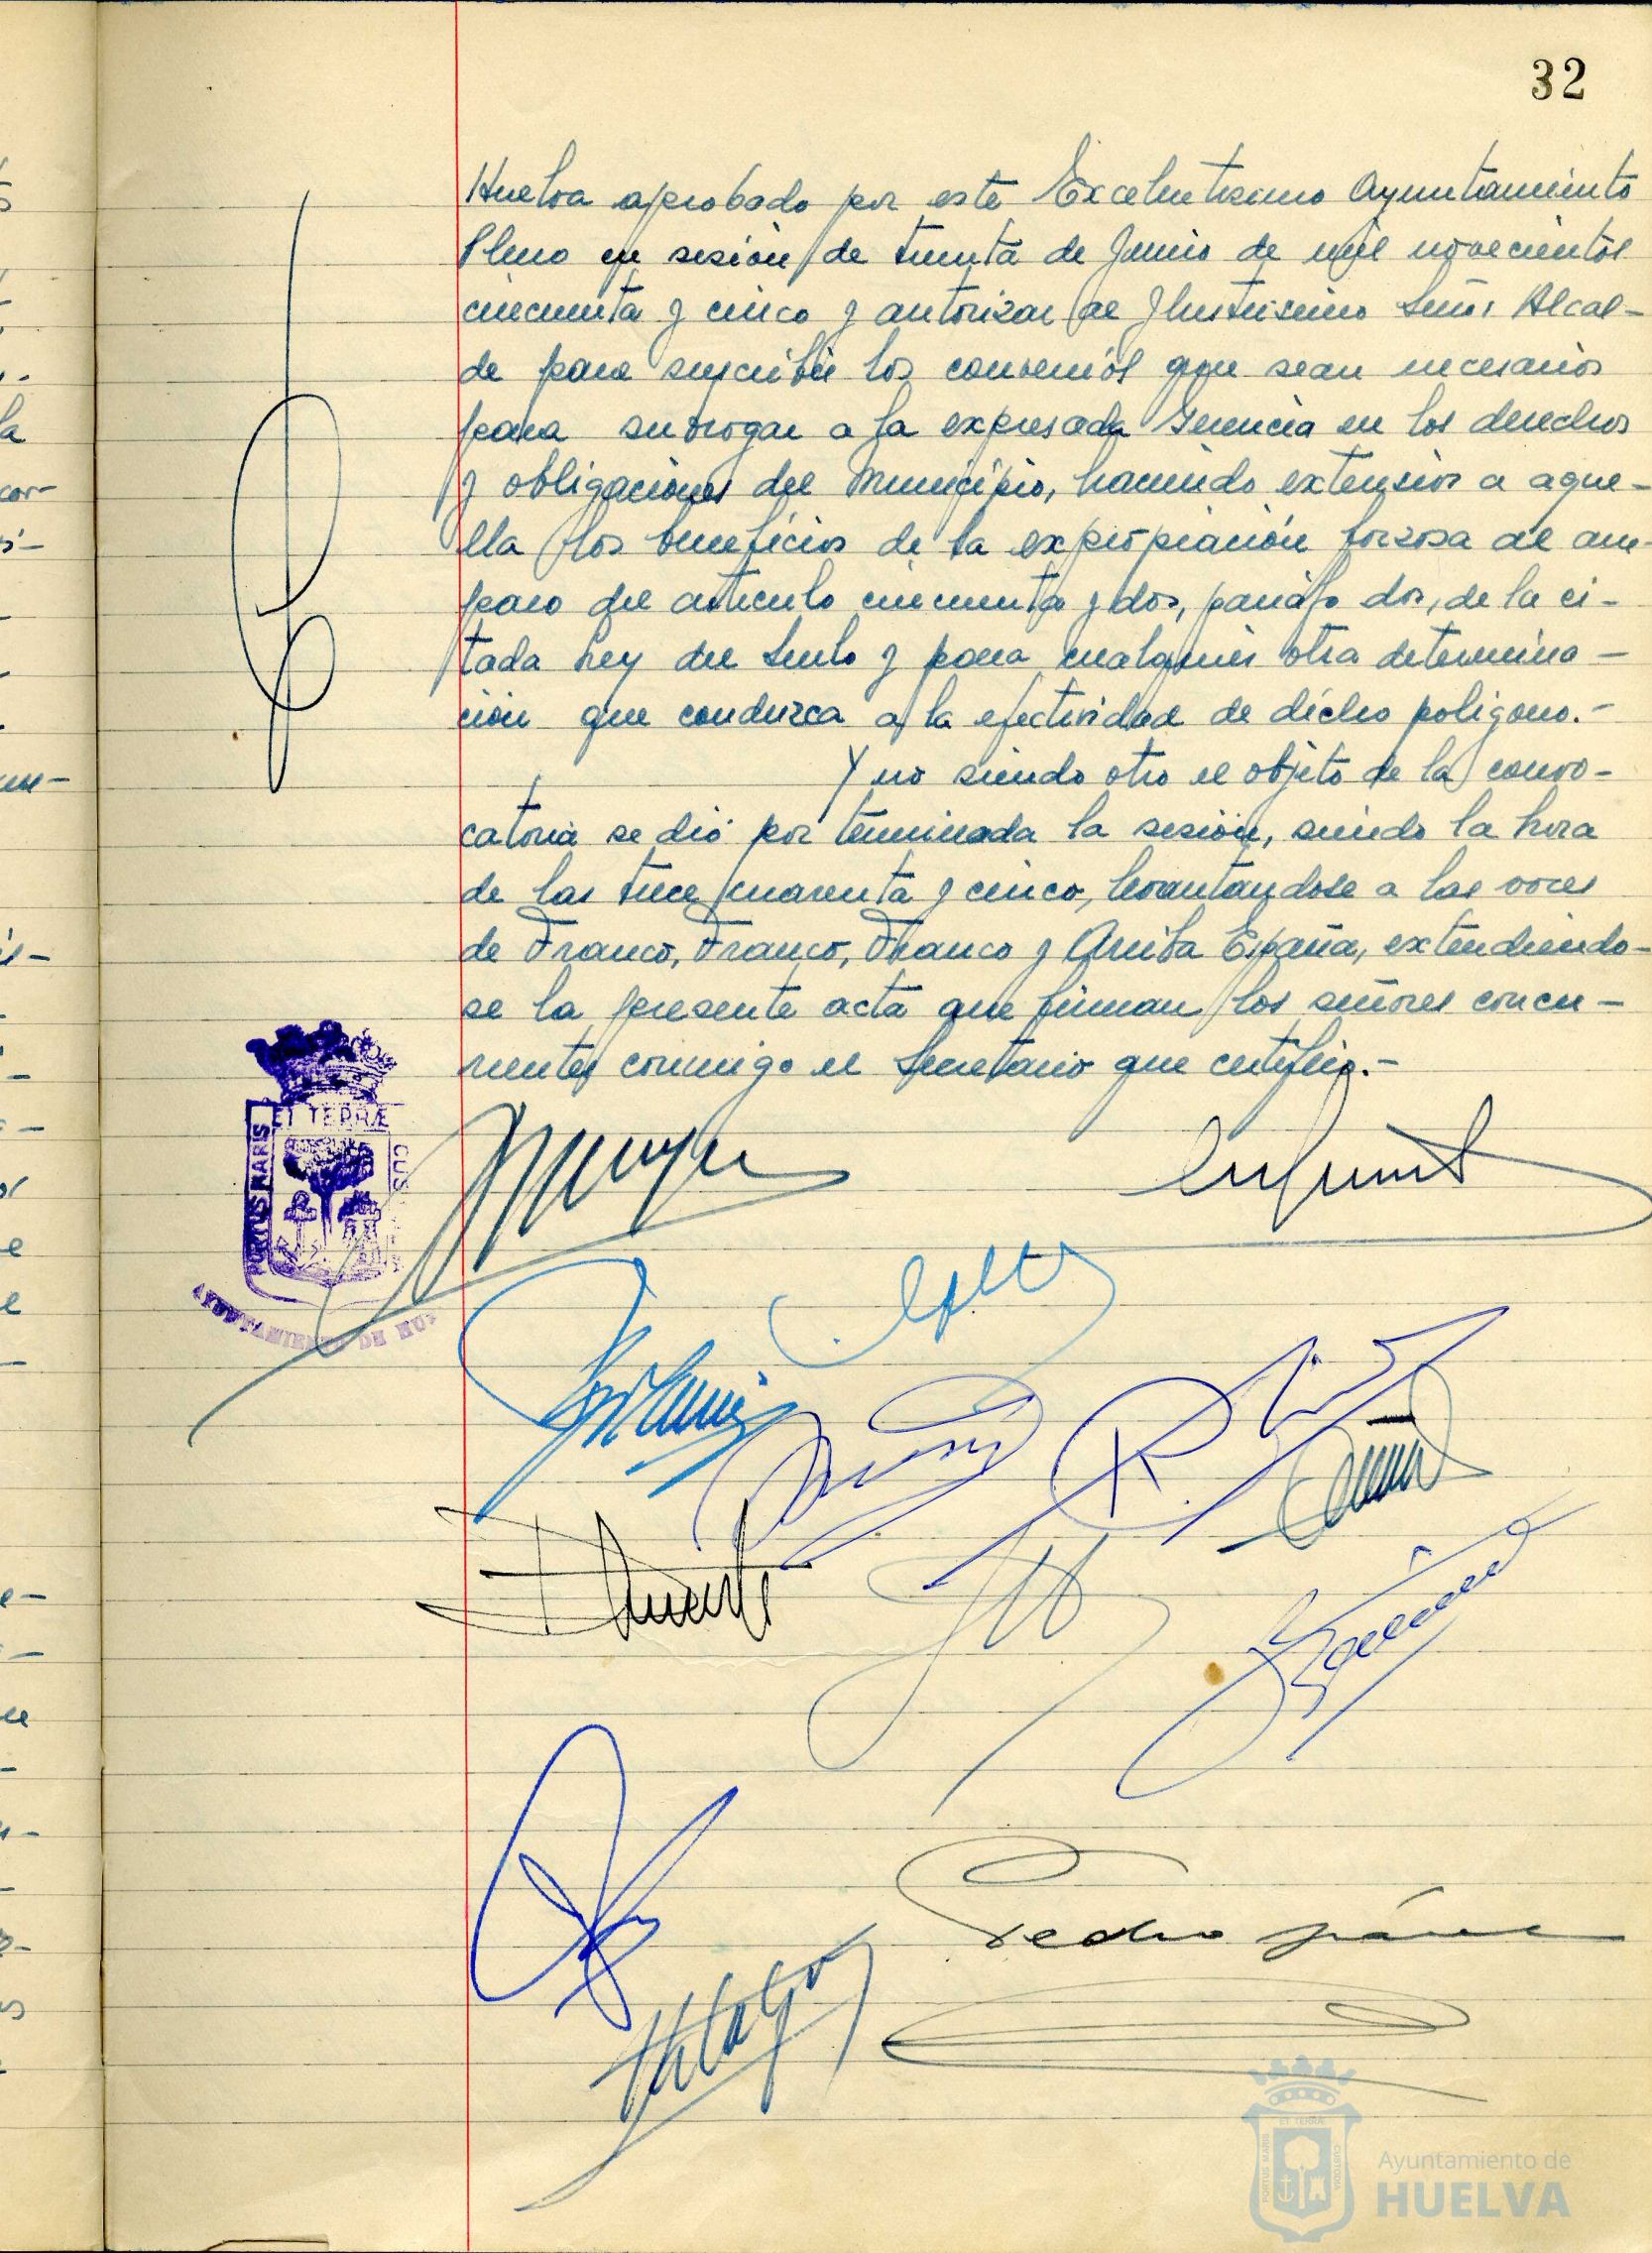 32
Huelva aprobado por este Excelentisimo Ayuntamiento
Pleno en sesión de treinta de Junio de mil novecientos
cincuenta y cinco y autorizar al Ilustrisimo Señor Alcal-
de para suscribir los convenios que sean necesarios
para subrogar a la expresada Gerencia en los derechos
y obligaciones del Municipio, haciendo extensivos a aque-
lla los beneficios de la expropiación forzosa al am-
paro del articulo cincuenta y dos, parrafo dos, de la ci-
tada Ley del Suelo y para cualquier otra determina-
ción que conduzca a la efectividad de dicho poligono.-
Y no siendo otro el objeto de la convo-
catoria se dió por terminada la sesión, siendo la hora
de las trece cuarenta y cinco, levantandose a las voces
de Franco, Franco, Franco y Arriba España, extendiendo-
se la presente acta que firman los señores concu-
rrentes conmigo el Secretario que certifico.-
PORTUS MARIS ET TERRÆ CUS
AYUNTAMIENTO DE HU
Pedro
Hidalgo
PORTUS MARIS ET TERRÆ CUSTODIA
Ayuntamiento de
HUELVA